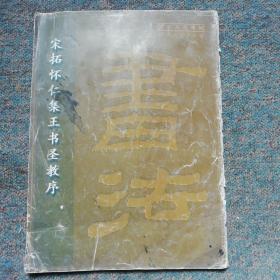 宋拓怀仁集王书圣教序
書法